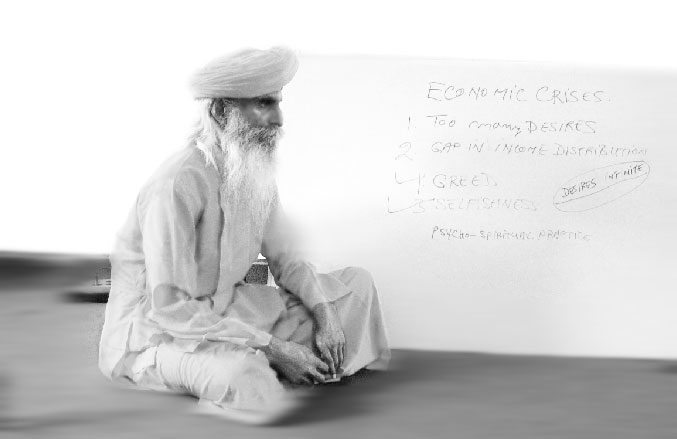 ECONOMIC CRISES.
1 TOO many DESIRES
2 GAP IN INCOME DISTRIBUTION
4 GREED
DESIRES INFINITE
3 SELFISHNESS
PSYCHO-SPIRITUAL